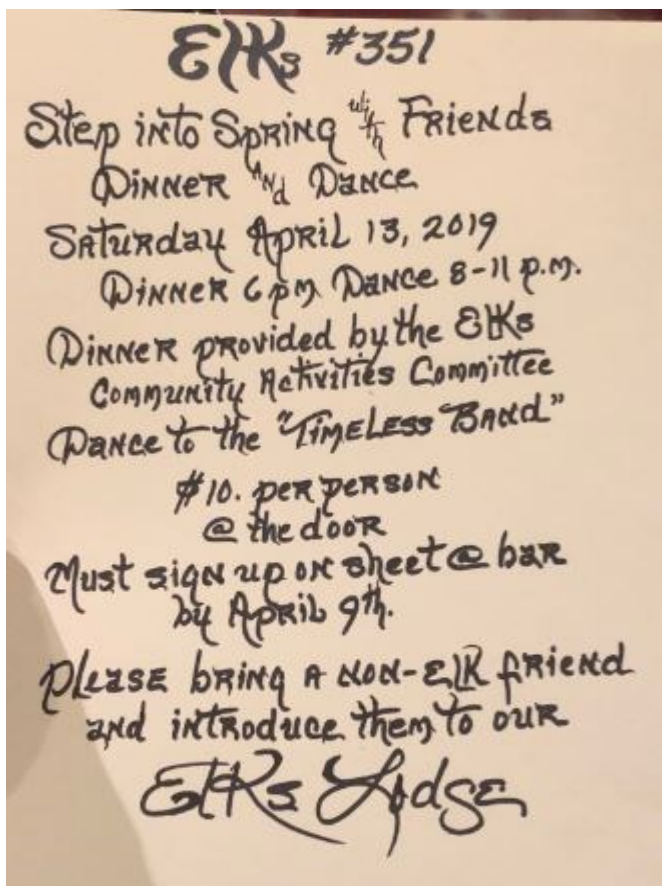 Elks #351
Step into Spring with Friends
Dinner and Dance
Saturday April 13, 2019
Dinner 6 pm Dance 8-11 p.m.
Dinner provided by the Elks
Community Activities Committee
Dance to the "Timeless Band"
$10. per person
@ the door
Must sign up on sheet @ bar
by April 9th.
Please bring a non-Elk friend
and introduce them to our
Elks Lodge